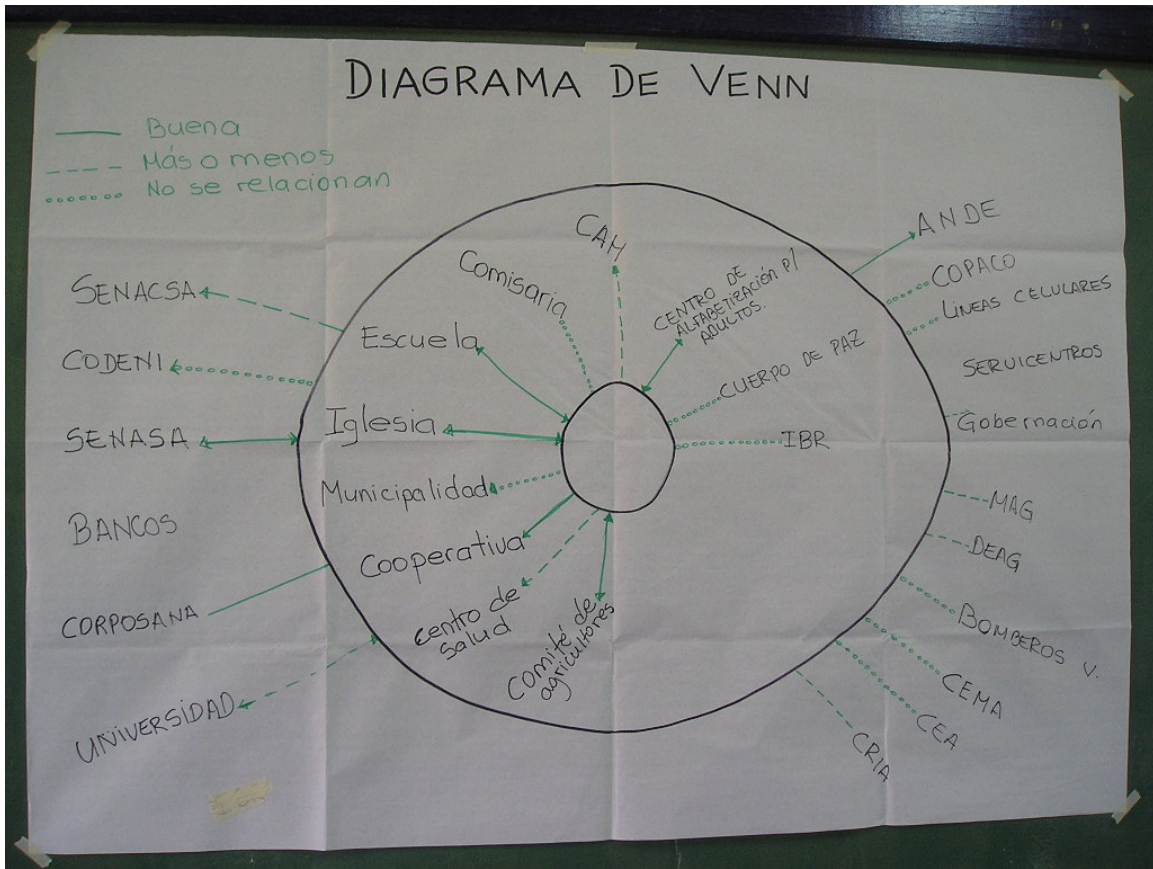 DIAGRAMA DE VENN
Buena
Más o menos
No se relacionan
SENACSA
CODENI
SENASA
BANCOS
CORPOSANA
UNIVERSIDAD
CAH
Comisaria
Escuela
Iglesia
Municipalidad
Cooperativa
Centro de
salud
Comité de
agricultores
CENTRO DE
ALFABETIZACIÓN P/
ADULTOS.
CUERPO DE PAZ
IBR
ANDE
COPACO
LÍNEAS CELULARES
SERVICENTROS
Gobernación
MAG
DEAG
BOMBEROS V.
CEMA
CEA
CRIA